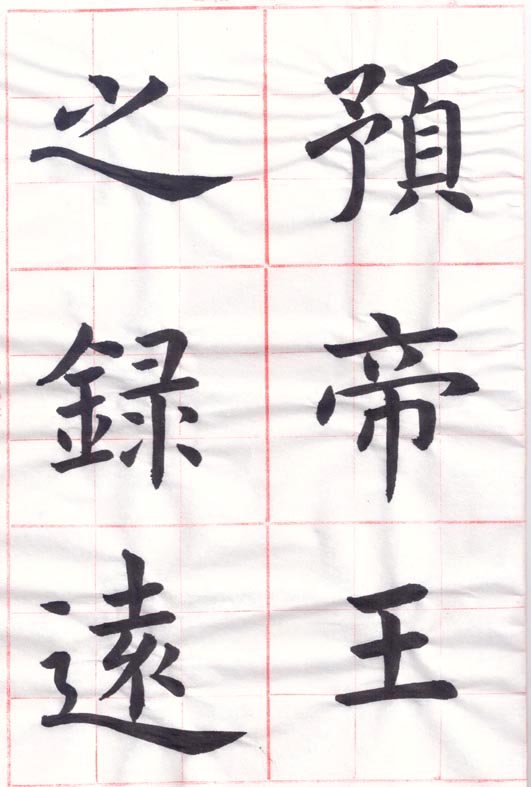 預帝王
之録遠